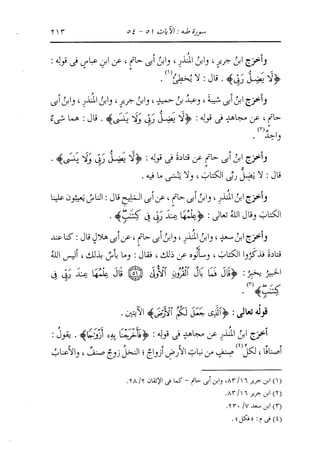 سورة طه : الآيات ٥١ - ٥٤
٢١٣
وأخرج ابنُ جريرٍ ، وابنُ المنذرِ ، وابنُ أبى حاتمٍ ، عن ابنِ عباسٍ فى قوله :
﴿لَّا يَضِلُّ رَبِّى﴾ . قال : لا يُخطِئُ(١) .
وأخرج ابنُ أبى شيبةَ ، وعبدُ بنُ حميدٍ ، وابنُ جريرٍ ، وابنُ المنذرِ ، وابنُ أبى
حاتمٍ ، عن مجاهدٍ فى قوله : ﴿لَّا يَضِلُّ رَبِّى وَلَا يَنسَى﴾ . قال : هما شىءٌ
واحدٌ(٢) .
وأخرج ابنُ أبى حاتمٍ عن قتادةَ فى قوله : ﴿لَّا يَضِلُّ رَبِّى وَلَا يَنسَى﴾ .
قال : لا يَضِلُّ ربِّى الكتابَ ، ولا يَنْسَى ما فيه .
وأخرج ابنُ المنذرِ ، وابنُ أبى حاتمٍ ، عن أبى المَليحِ قال : الناسُ يَعيبُون علينا
الكتابَ وقال اللهُ تعالى : ﴿عِلْمُهَا عِندَ رَبِّى فِى كِتَٰبٍ﴾ .
وأخرج ابنُ سعدٍ ، وابنُ المنذرِ ، وابنُ أبى حاتمٍ ، عن أبى هلالٍ قال : كنا عندَ
قتادةَ فذكَروا الكتابَ ، وسألُوه عن ذلك ، فقال : وما بأسٌ بذلك ، أليس اللهُ
الخبيرُ يخبِرُ : ﴿قَالَ فَمَا بَالُ ٱلْقُرُونِ ٱلْأُولَىٰ ۝٥١ قَالَ عِلْمُهَا عِندَ رَبِّى فِى
كِتَٰبٍ﴾(٣) .
قولُه تعالى : ﴿ٱلَّذِى جَعَلَ لَكُمُ ٱلْأَرْضَ﴾ الآيتين .
أخرَج ابنُ المنذرِ عن مجاهدٍ فى قوله : ﴿فَأَخْرَجْنَا بِهِۦٓ أَزْوَٰجًا﴾ . يقولُ :
أصنافًا ، لكلِّ(٤) صنفٍ من نباتِ الأرضِ أزواجٌ ؛ النخلُ زوجٌ صنفٌ ، والأعنابُ
(١) ابن جرير ١٦/ ٨٣، وابن أبى حاتم - كما فى الإتقان ٢/ ٢٨.
(٢) ابن جرير ١٦/ ٨٣.
(٣) ابن سعد ٧/ ٢٣٠.
(٤) فى م : «فكل» .